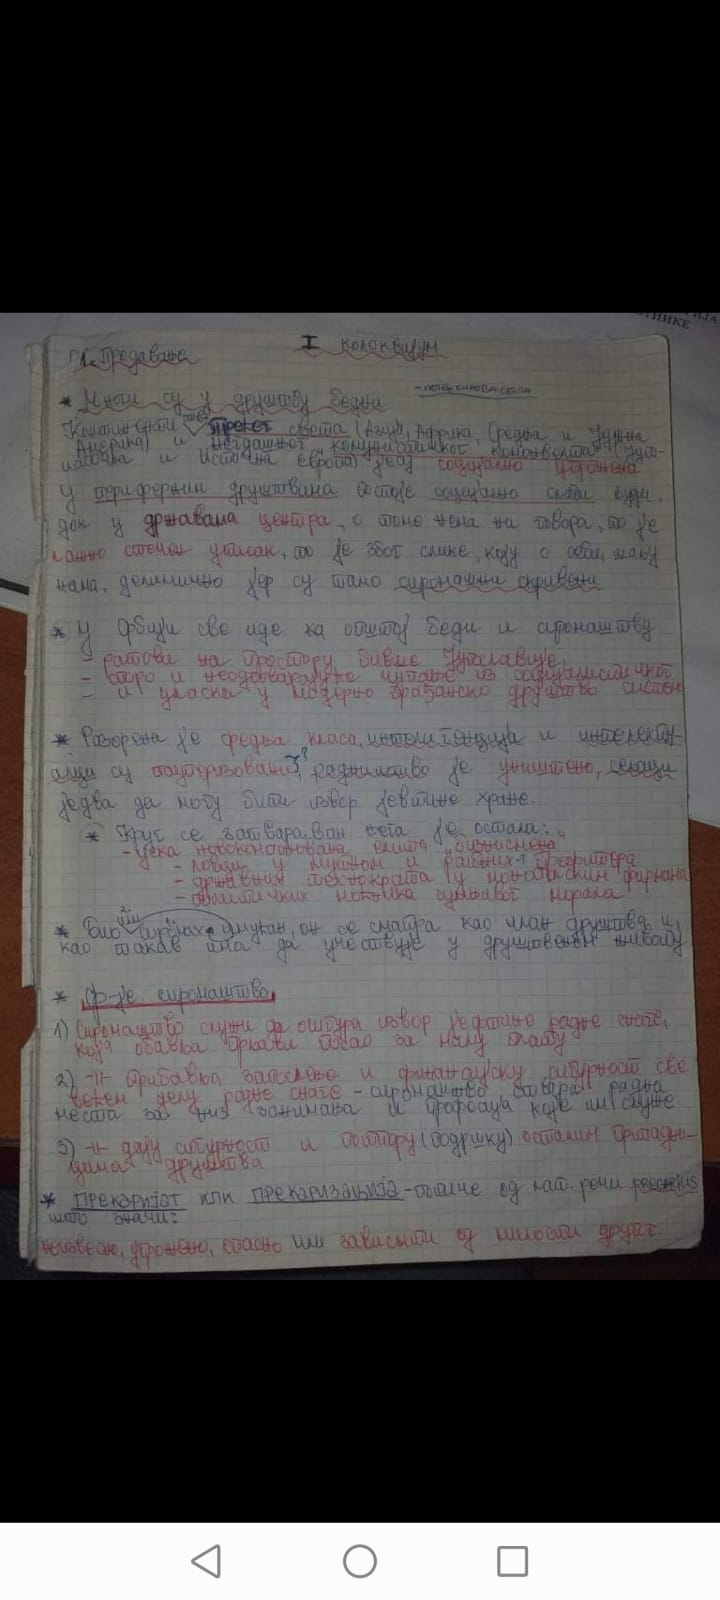 I колоквијум
1. Предавање
* Многи су у друштву бедни
Континенти трећег света (Азија, Африка, Средња и Јужна
Америка) и негдашњег комунистичког
источна Европа) јеу социјално угрожена
У периферним друштвима постоје социјално слаби људи,
док у државама центра, о томе нема ни говора, то је
лажно стечен утисак, то је због слике, коју о себи, имају
нама, делимично јер су тамо сиромашни скривени
* У Србији све иде ка општој беди и сиромаштву
- ратови на простору бивше Југославије,
- споро и неодговарајуће из социјалистичког
- и уласка у модерно грађанско друштво систем
* Разорена је средња класа, интелигенција и интелекту-
алци су пауперизовани, радништво је уништено, сељаци
једва да могу бити извор јевтине хране.
* Круг се затвара, ван њега је остала:
- уска новокомпонована елита „бизнисмена“
- људи у мутном и
- државних технократа у монополским фирмама
- политичких моћника сумњивог морала
* Био сиромах имућан, он се сматра као члан друштва и
као такав има да учествује у друштвеном животу
* Ф-је сиромаштва
1) Сиромаштво служи да извор јефтине радне снаге,
која обавља прљави посао за малу плату
2) -||- прибавља запослење и финансијску сигурност све
већем делу радне снаге - сиромаштво отвара радна
места за низ занимања и професија које им служе
3) -||- дају сигурност и потпору (подршку) осталим припадни-
цима друштва
* ПРЕКАРИЈАТ или ПРЕКАРИЗАЦИЈА - потиче од лат. речи
што значи:
неизвесно, угрожено, опасно или зависити од милости другог.